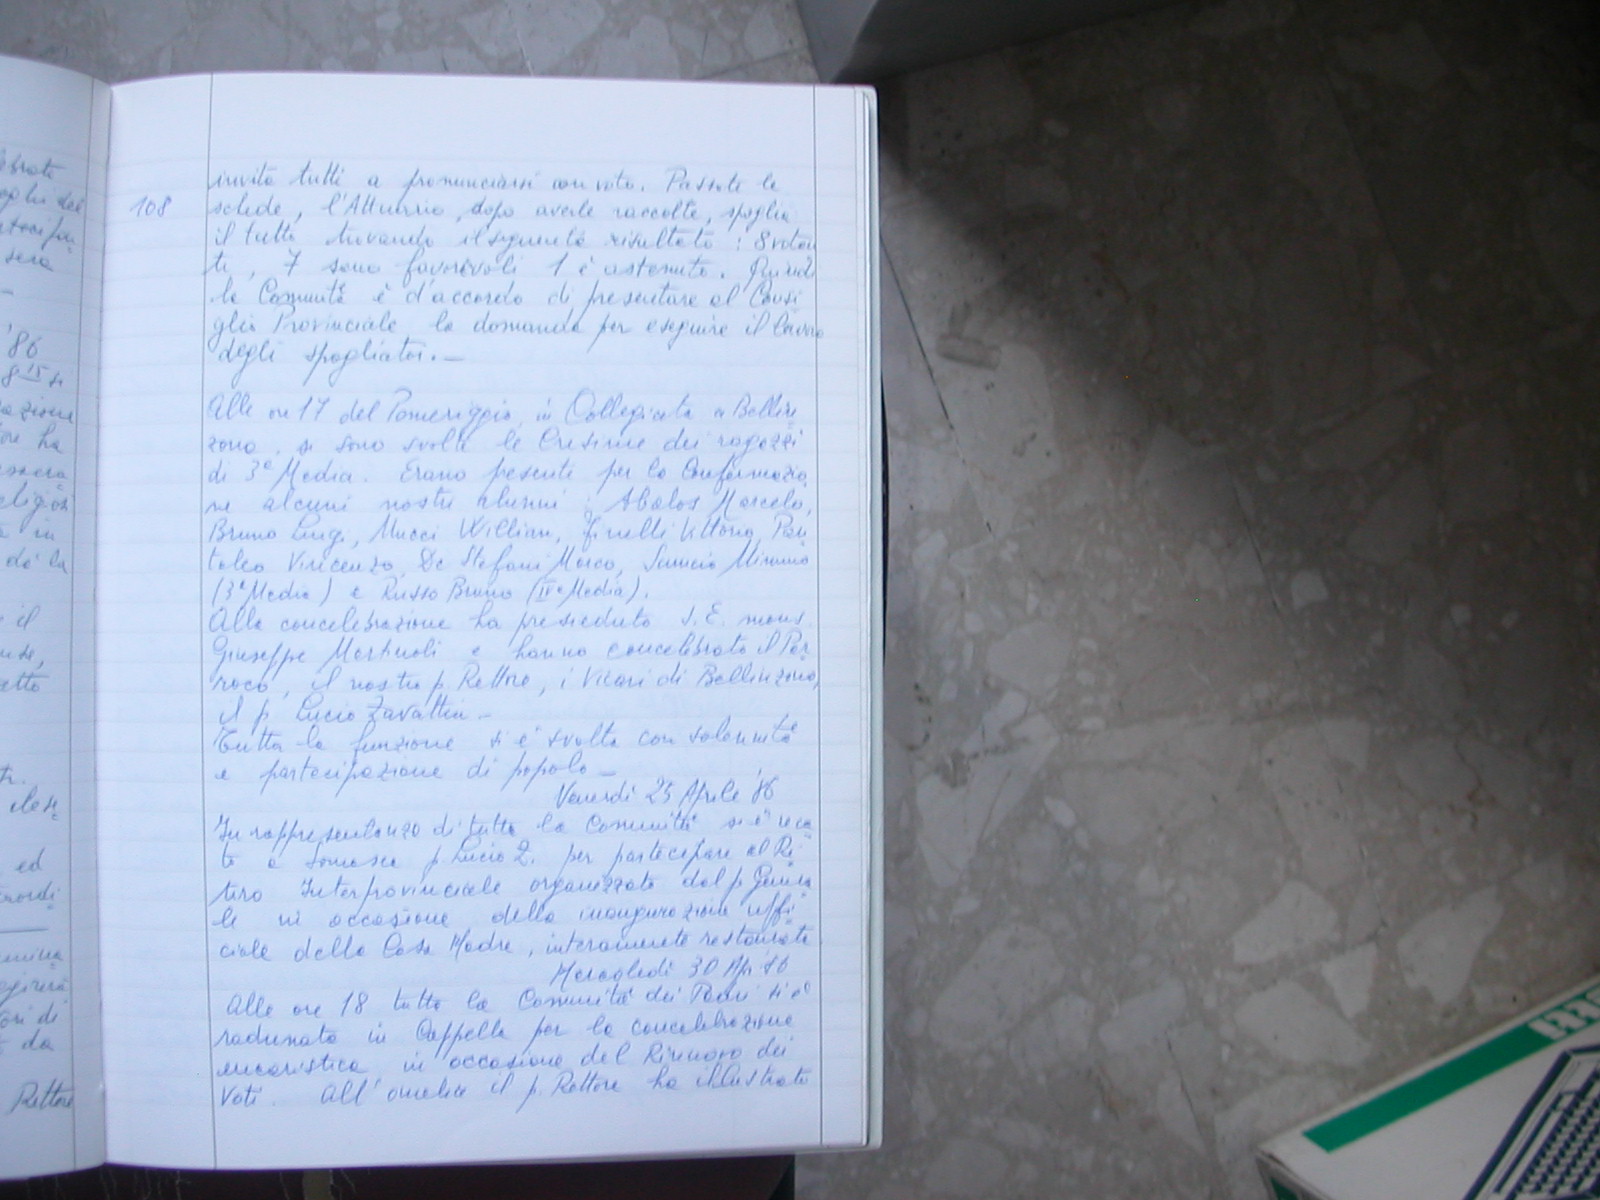 108
invita tutti a pronunciarsi con voto. Passate le
schede, l'Attuario, dopo averle raccolte, spoglia
il tutto trovando il seguente risultato: 8 votan
ti, 7 sono favorevoli 1 è astenuto. Quindi
la Comunità è d'accordo di presentare al Consi
glio Provinciale la domanda per eseguire il lavoro
degli spogliatoi. —
Alle ore 17 del Pomeriggio, in Collegiata a Bellin
zona, si sono svolte le Cresime dei ragazzi
di 3ª Media. Erano presenti per la Confermazio
ne alcuni nostri alunni: Abalos Marcelo,
Bruno Luigi, Mucci Willian, Finelli Vittorio, Pan
taleo Vincenzo, De Stefani Marco, Mimmo
(3ª Media) e Russo Bruno (IVª Media).
Alla concelebrazione ha presieduto S.E. mons.
Giuseppe Martinoli e hanno concelebrato il Par
roco, il nostro p. Rettore, i Vicari di Bellinzona,
il p. Lucio Zavattin —
Tutta la funzione si è svolta con solennità
e partecipazione di popolo —
Venerdì 25 Aprile '86
In rappresentanza di tutta la Comunità si è reca
to a Somasca p. Lucio Z. per partecipare al Ri
tiro Interprovinciale organizzato dal p. Genera
le in occasione della inaugurazione uffi
ciale della Casa Madre, interamente restaurata
Mercoledì 30 Apr '86
Alle ore 18 tutta la Comunità dei Padri si è
radunata in Cappella per la concelebrazione
eucaristica in occasione del Rinnovo dei
Voti. All'omelia il p. Rettore ha illustrato
'86
sera
ed
Rettore